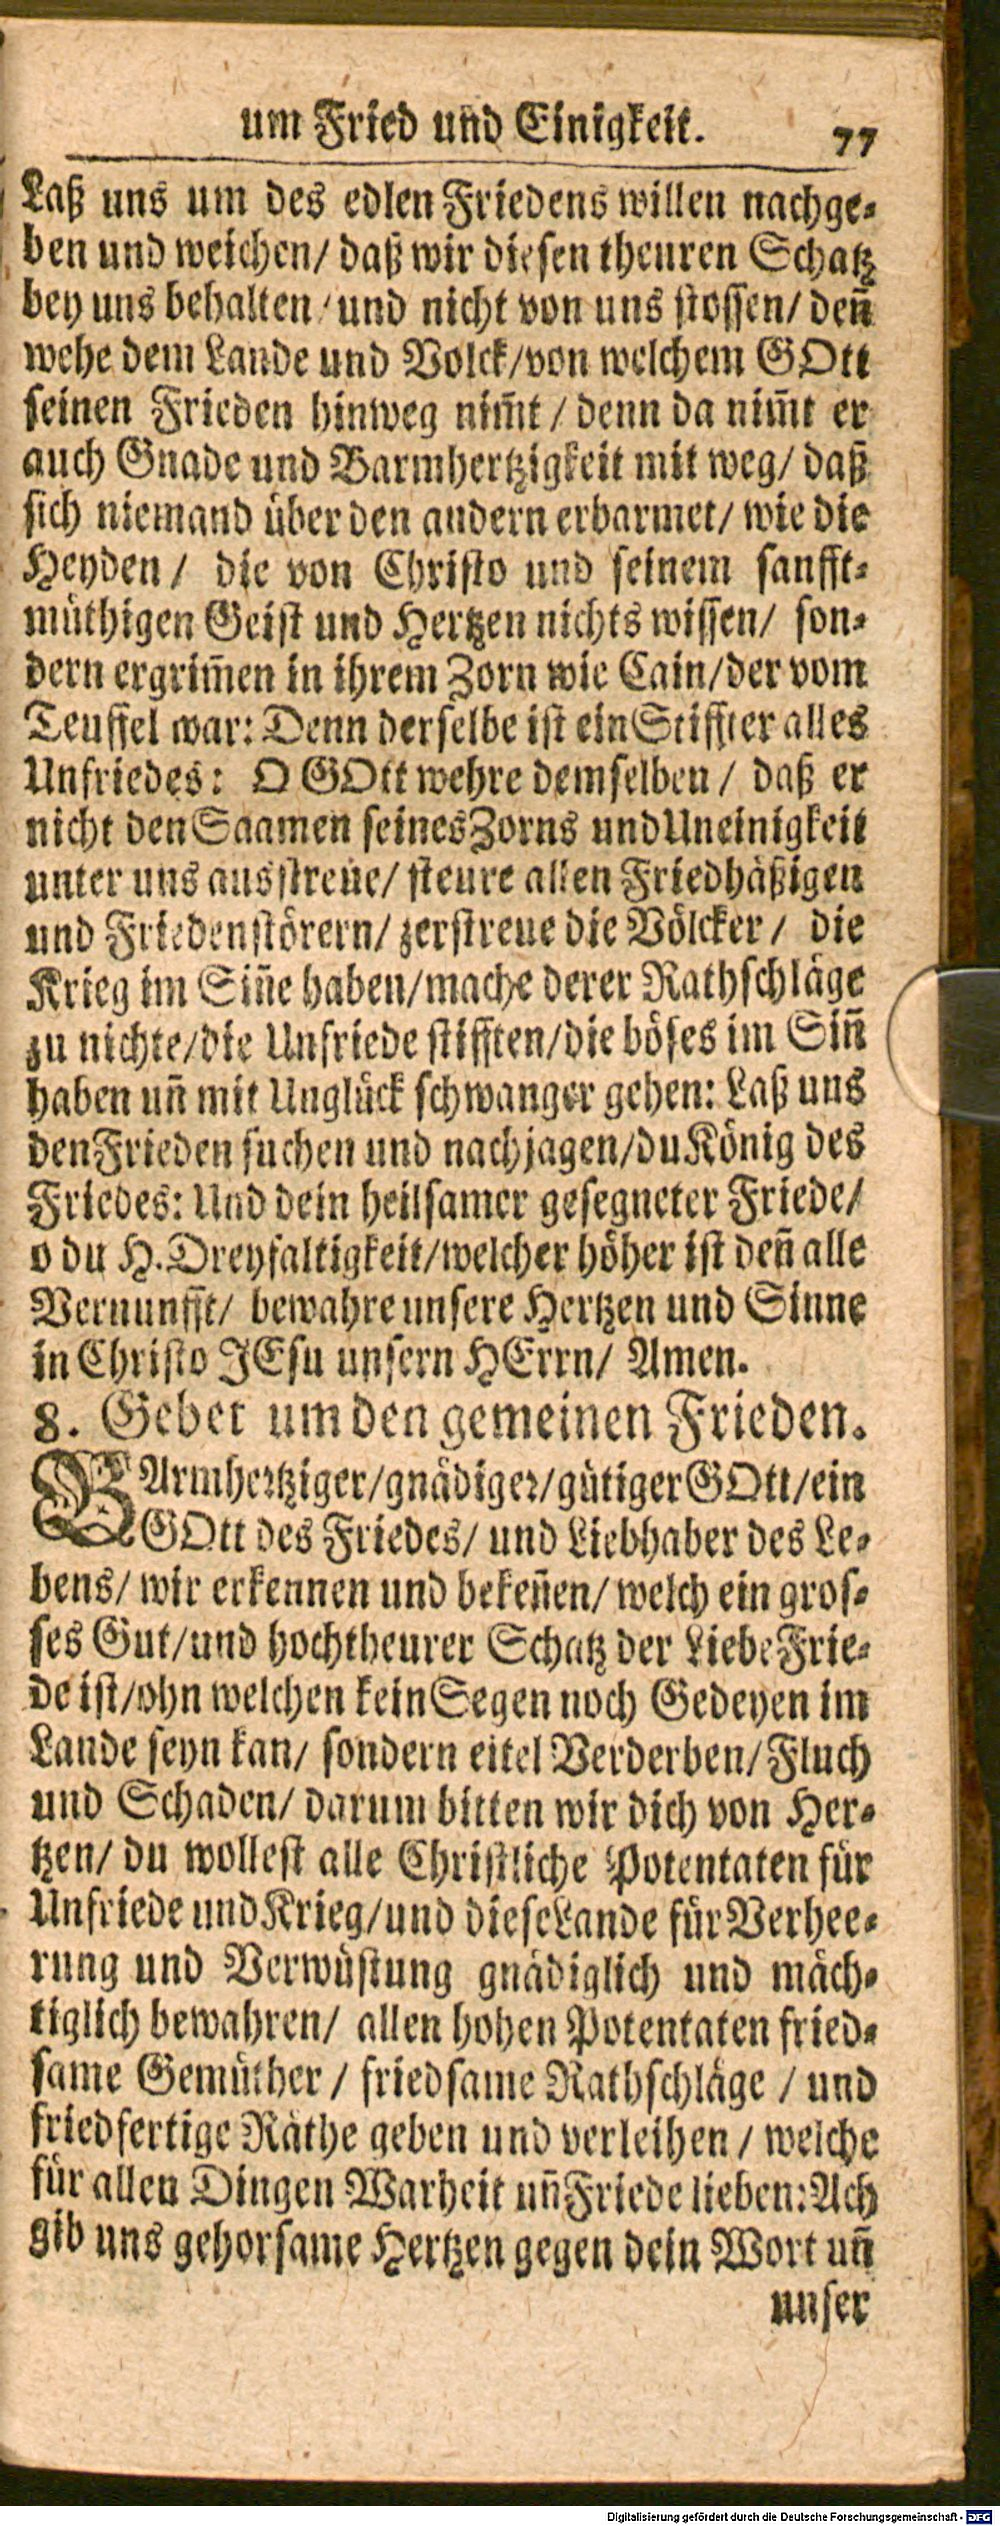 um Fried und Einigkeit. 77
Laß uns um des edlen Friedens willen nachge-
ben und weichen/ daß wir diesen theuren Schatz
bey uns behalten/ und nicht von uns stossen/ deñ
wehe dem Lande und Volck/von welchem GOtt
seinen Frieden hinweg nim̃t / denn da nim̃t er
auch Gnade und Barmhertzigkeit mit weg/ daß
sich niemand über den andern erbarmet/ wie die
Heyden / die von Christo und seinem sanfft-
müthigen Geist und Hertzen nichts wissen/ son-
dern ergrim̃en in ihrem Zorn wie Cain/der vom
Teuffel war: Denn derselbe ist ein Stiffter alles
Unfriedes: O GOtt wehre demselben / daß er
nicht den Saamen seines Zorns und Uneinigkeit
unter uns ausstreue/ steure allen Friedhäßigen
und Friedenstörern/ zerstreue die Völcker / die
Krieg im Siñe haben/mache derer Rathschläge
zu nichte/die Unfriede stifften/die böses im Siñ
haben uñ mit Unglück schwanger gehen: Laß uns
den Frieden suchen und nachjagen/du König des
Friedes: Und dein heilsamer gesegneter Friede/
o du H. Dreyfaltigkeit/welcher höher ist deñ alle
Vernunfft/ bewahre unsere Hertzen und Sinne
in Christo JEsu unsern HErrn/ Amen.
8. Gebet um den gemeinen Frieden.
BArmhertziger/gnädiger/gütiger GOtt/ein
GOtt des Friedes/ und Liebhaber des Le-
bens/ wir erkennen und bekeñen/ welch ein gros-
ses Gut/und hochtheurer Schatz der Liebe Frie-
de ist/ohn welchen kein Segen noch Gedeyen im
Lande seyn kan/ sondern eitel Verderben/ Fluch
und Schaden/ darum bitten wir dich von Her-
tzen/ du wollest alle Christliche Potentaten für
Unfriede und Krieg/und diese Lande für Verhee-
rung und Verwüstung gnädiglich und mäch-
tiglich bewahren/ allen hohen Potentaten fried-
same Gemüther / friedsame Rathschläge / und
friedfertige Räthe geben und verleihen / welche
für allen Dingen Warheit uñ Friede lieben: Ach
gib uns gehorsame Hertzen gegen dein Wort uñ
unser
Digitalisierung gefördert durch die Deutsche Forschungsgemeinschaft - DFG